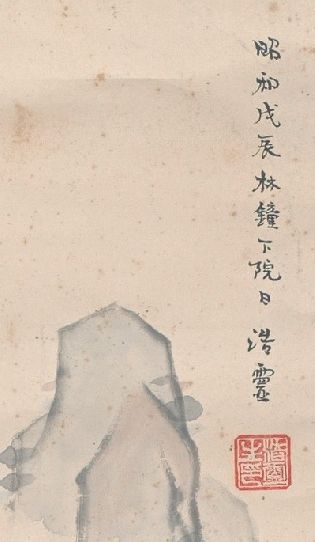 昭和戊辰林鐘下院日 浩霊